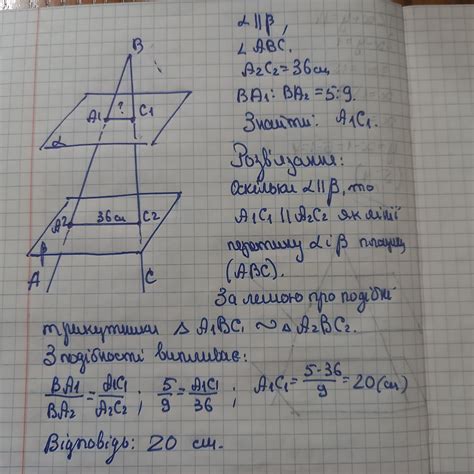 α||β,
∠ABC.
A2C2=36см
BA1:BA2=5:9.
Знайти: A1C1.
Розв'язання:
Оскільки α||β, то
A1C1||A2C2 як лінії
перетину α і β площину
(ABC).
За лемою про подібні
трикутники △A1BC1 ~ △A2BC2.
З подібності випливає:
BA1/BA2=A1C1/A2C2; 5/9=A1C1/36; A1C1=5·36/9=20(см)
Відповідь: 20 см.
B
A1
?
C1
α
A2
36см
C2
β
A
C